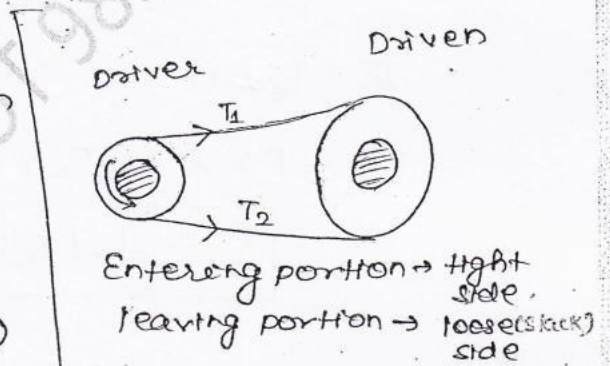 Driven
Driver
T1
T2
Entering portion → tight
side.
leaving portion → loose(slack)
side